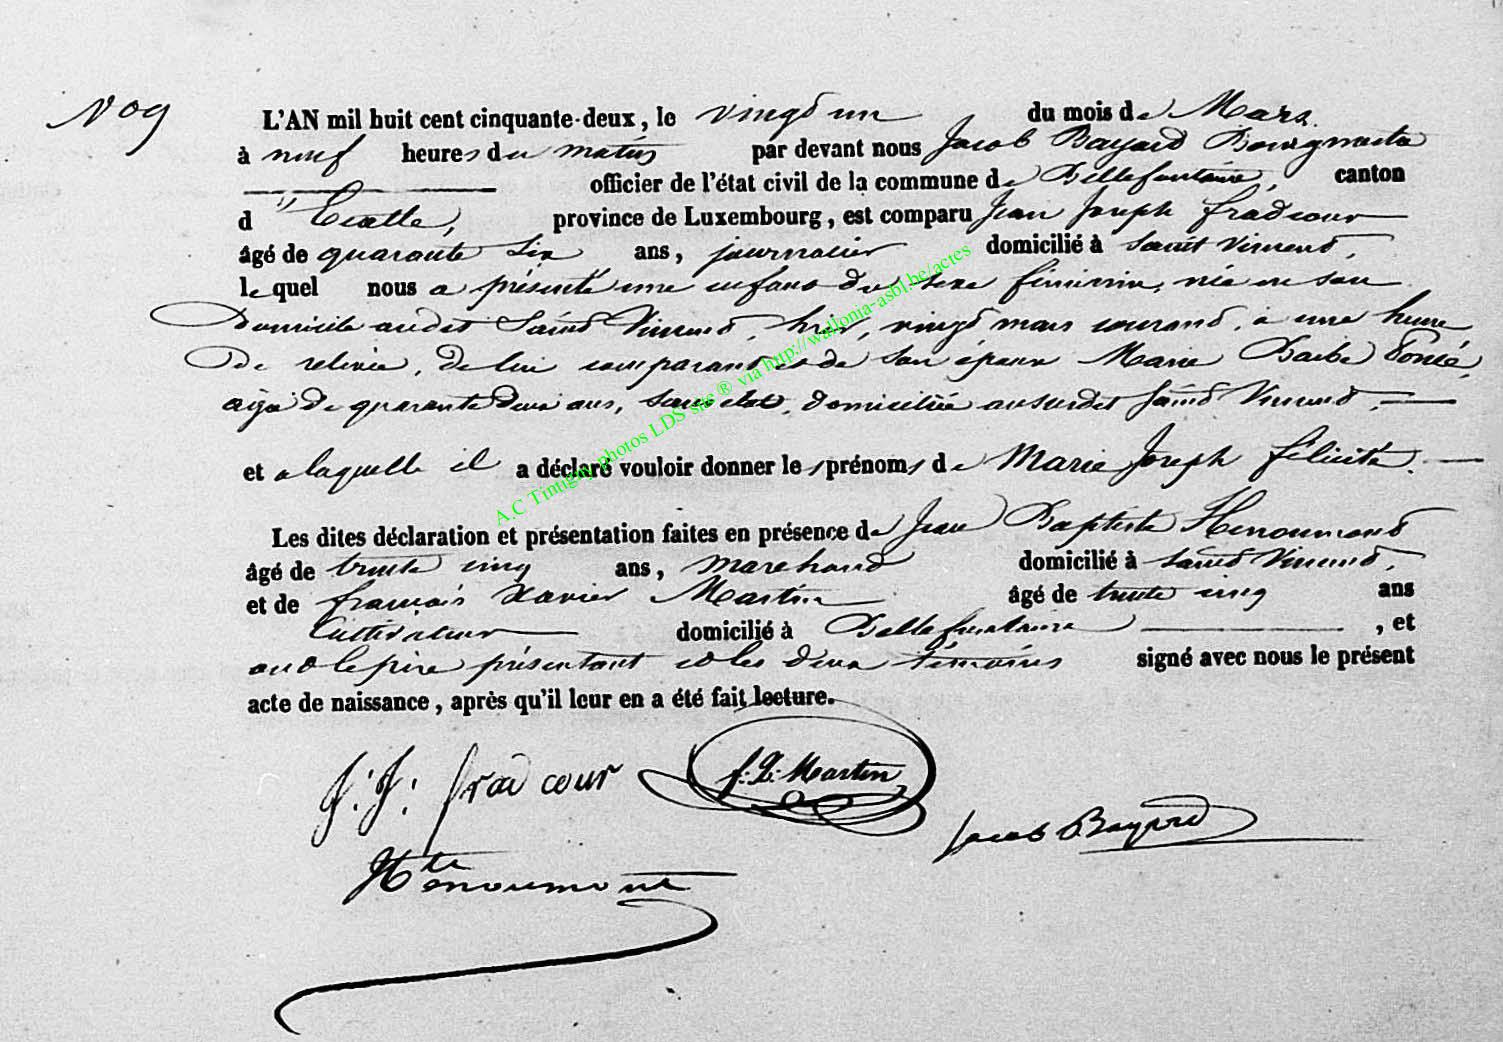 N° 9
L'AN mil huit cent cinquante-deux, le vingt un du mois de Mars.
à neuf heures du matin par devant nous Jacob Bayard Bourgmestre
officier de l'état civil de la commune de Bellefontaine, canton
d'Etalle, province de Luxembourg, est comparu Jean Joseph fradcour
âgé de quarante six ans, journalier domicilié à Saint Vincent,
lequel nous a présenté une enfant du sexe féminin, née en son
Domicile audit Saint Vincent, hier, vingt mars courant, à une heure
De relevée, de lui comparant et de son épouse Marie Barbe
agée De quarante deux ans, sans état, domiciliée au susdit Saint Vincent,
et a laquelle il a déclaré vouloir donner les prénoms de Marie Joseph félicité.
Les dites déclaration et présentation faites en présence de Jean Baptiste Henoumont
âgé de trente cinq ans, marchand domicilié à Saint Vincent,
et de françois Xavier Martin âgé de trente cinq ans
Cultivateur domicilié à Bellefontaine, et
ont le père présentant et les deux témoins signé avec nous le présent
acte de naissance, après qu'il leur en a été fait lecture.
J: J: frad cour f. X. Martin
Jacob Bayard
Henoumont
A.C Tintigny photos LDS site ® via http://wallonia-asbl.be/actes